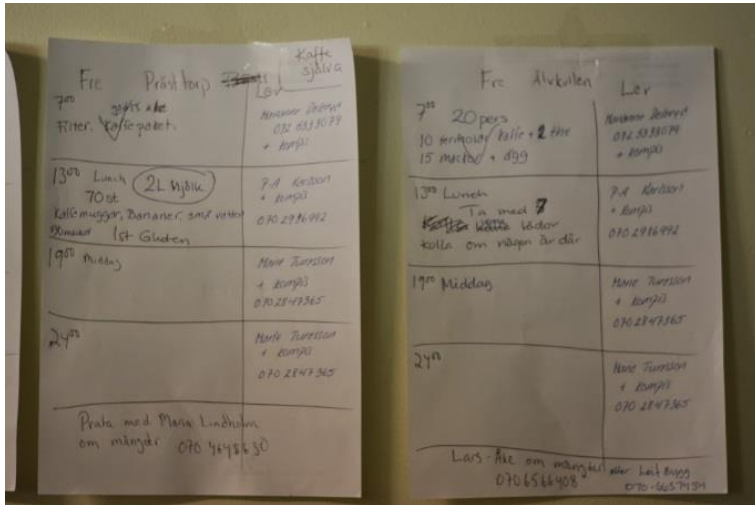 Kaffe
själva
Fre Prästtorp Lör
7⁰⁰
Filter. Kaffepaket.
Marianne
032 5333079
+ kompis
13⁰⁰ Lunch 2L Mjölk
70 st
Kaffemuggar, Bananer, små vatten
1st Gluten
P-A Karlsson
+ kompis
070 2996992
19⁰⁰ Middag
Marie Turesson
+ kompis
070 2847365
24⁰⁰
Marie Turesson
+ kompis
070 2847365
Prata med Maria Lindholm
om mängder 070 4648630
Fre Älvkullen Lör
7⁰⁰ 20 pers
10 termosar kaffe + 2 the
15 mackor + ägg
Marianne
032 5333079
+ kompis
13⁰⁰ Lunch
Ta med 7
lådor
kolla om någon är där
P-A Karlsson
+ kompis
070 2996992
19⁰⁰ Middag
Marie Turesson
+ kompis
070 2847365
24⁰⁰
Marie Turesson
+ kompis
070 2847365
Lars-Åke om mängder eller Leif Bygg
070 6566408
070-6637434